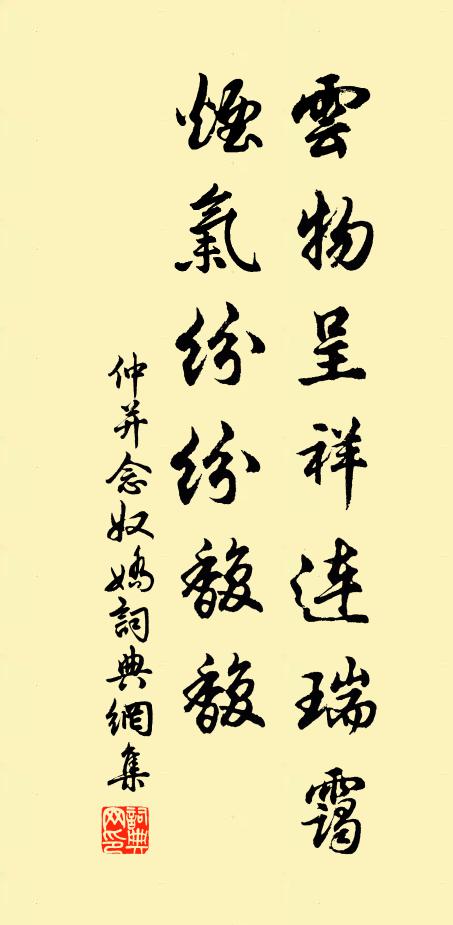 雲物呈祥連瑞靄
煙氣紛紛馥馥
仲并念奴嬌詞典網集
詞典網印